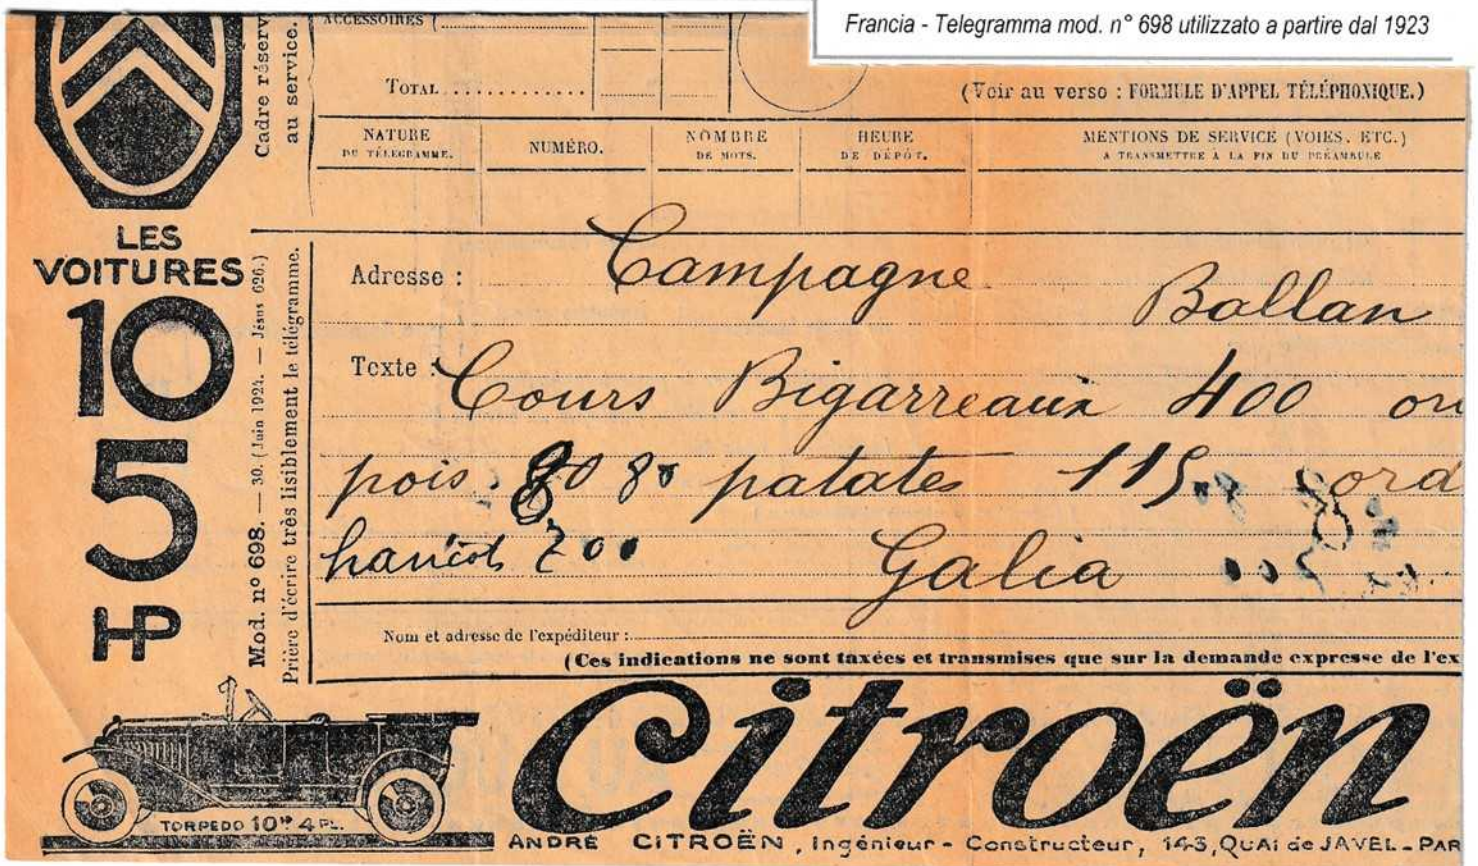 Francia - Telegramma mod. n° 698 utilizzato a partire dal 1923
ACCESSOIRES (
Cadre réserv
au service.
TOTAL
(Voir au verso : FORMULE D'APPEL TÉLÉPHONIQUE.)
NATURE
DU TÉLÉGRAMME.
NUMÉRO.
NOMBRE
DE MOTS.
HEURE
DE DÉPÔT.
MENTIONS DE SERVICE (VOIES, ETC.)
A TRANSMETTRE À LA FIN DU PRÉAMBULE
LES
VOITURES
10
5
HP
Mod. n° 698. — 30. (Juin 1924. — Jésus 626.)
Prière d'écrire très lisiblement le télégramme.
Adresse : Campagne Ballan
Texte : Cours Bigarreaux 400 on
pois 80 patates 115 ord
haricots 200 Galia
Nom et adresse de l'expéditeur :
(Ces indications ne sont taxées et transmises que sur la demande expresse de l'ex
TORPEDO 10HP 4 PL.
Citroën
ANDRÉ CITROËN, Ingénieur - Constructeur, 143, QUAI de JAVEL - PAR